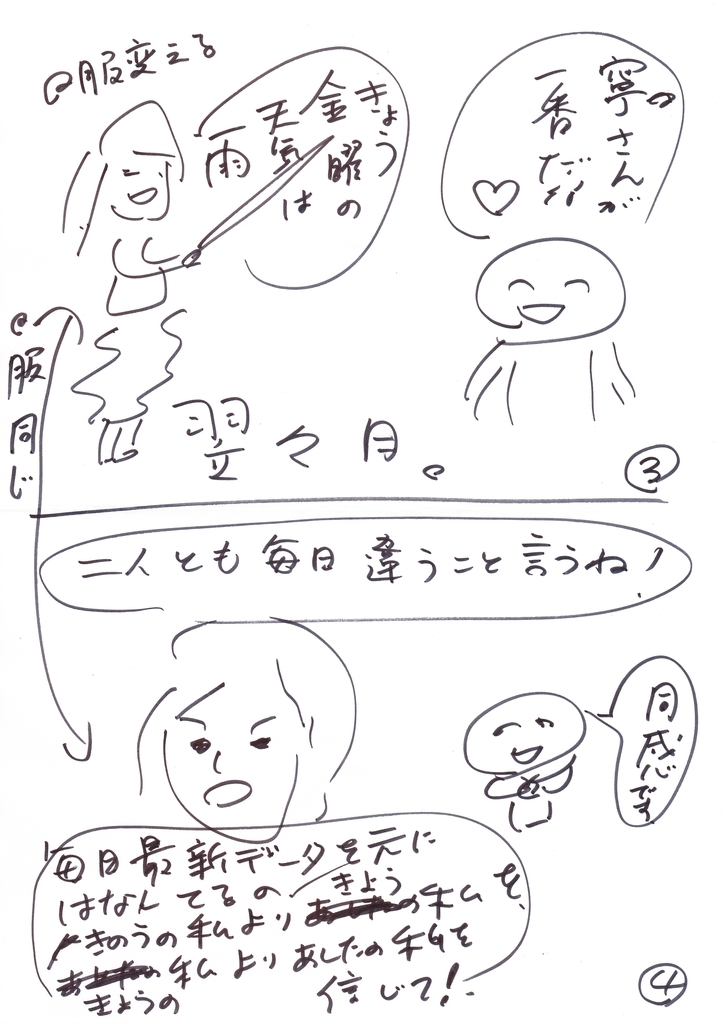 服変える
きょう
金曜の
天気は
雨
寧さんが
一番だな
服同じ
翌々日。
3
二人とも毎日違うこと言うね!
同感です
毎日最新データを元に
はなしてるの
きのうの私よりきょうの私を、
きょうの私よりあしたの私を
信じて!
4